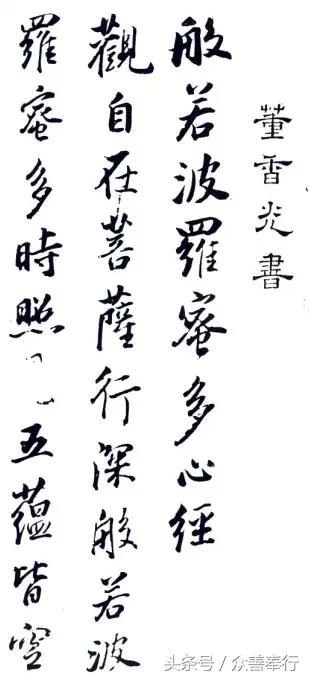 董香光書
般若波羅蜜多心經
觀自在菩薩行深般若波
羅蜜多時照五蘊皆空
头条号 / 众善奉行